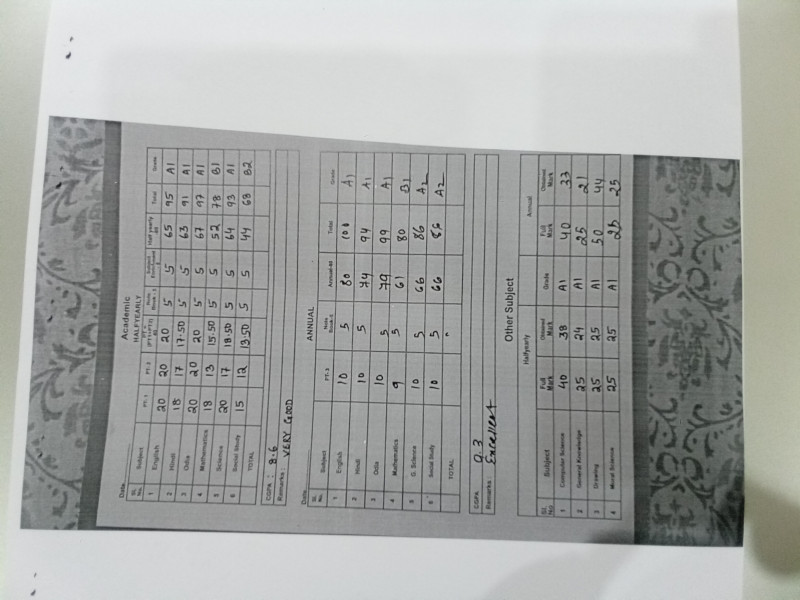 Academic
Date
HALFYEARLY
SL No. Subject PT-1 PT-2 PT - (PT1+PT2) Note Book Subject Half yearly Total Grade
1 English 20 20 20 5 5 65 95 A1
2 Hindi 18 17 17.50 5 5 63 91 A1
3 Odia 20 20 20 5 5 67 97 A1
4 Mathematics 18 13 15.50 5 5 52 78 B1
5 Science 20 17 18.50 5 5 64 93 A1
6 Social Study 15 12 13.50 5 5 44 68 B2
TOTAL
CGPA : 8.6
Remarks : VERY GOOD
ANNUAL
Date
SL No. Subject PT-3 Note Book-5 Annual-80 Total Grade
1 English 10 5 80 100 A1
2 Hindi 10 5 79 94 A1
3 Odia 10 5 79 99 A1
4 Mathematics 9 5 61 80 B1
5 G. Science 10 5 66 86 A2
6 Social Study 10 5 66 86 A2
TOTAL
CGPA 9.3
Remarks : Excellent
Other Subject
Halfyearly Annual
SL No Subject Full Mark Obtained Mark Grade Full Mark Obtained Mark
1 Computer Science 40 38 A1 40 33
2 General Knowledge 25 24 A1 25 21
3 Drawing 25 25 A1 50 44
4 Moral Science 25 25 A1 25 25